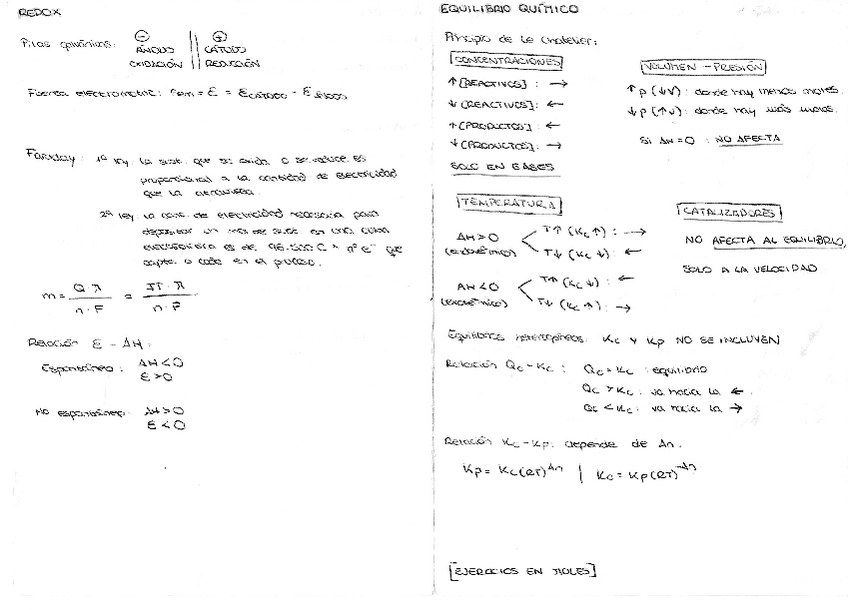 REDOX
Pilas galvánicas: ⊖ || ⊕
ÁNODO || CÁTODO
OXIDACIÓN || REDUCCIÓN
Fuerza electromotriz: fem = Ɛ = Ɛcátodo - Ɛánodo
Faraday: 1ª ley: La sust. que se oxida o se reduce es
proporcional a la cantidad de electricidad
que la atraviesa.
2ª ley: La cant. de electricidad necesaria para
depositar un mol de sust. en una cuba
electrolítica es de 96.500 C × nº e⁻ que
capta o cede en el proceso.
m = Q · M / n · F = I · t · M / n · F
Relación Ɛ - ΔH:
Espontáneo: ΔH < 0
Ɛ > 0
No espontáneo: ΔH > 0
Ɛ < 0
EQUILIBRIO QUÍMICO
Principio de Le Chatelier:
CONCENTRACIONES
↑ [REACTIVOS] : →
↓ [REACTIVOS] : ←
↑ [PRODUCTOS] : ←
↓ [PRODUCTOS] : →
SOLO EN GASES
VOLUMEN - PRESIÓN
↑ p (↓V) : donde hay menos moles.
↓ p (↑V) : donde hay más moles.
Si Δn = 0 : NO AFECTA
TEMPERATURA
ΔH > 0 T↑ (Kc ↑) : →
(endotérmico) T↓ (Kc ↓) : ←
ΔH < 0 T↑ (Kc ↓) : ←
(exotérmico) T↓ (Kc ↑) : →
CATALIZADORES
NO AFECTA AL EQUILIBRIO,
SOLO A LA VELOCIDAD
Equilibrios heterogéneos: Kc y Kp NO SE INCLUYEN
Relación Qc - Kc : Qc = Kc : equilibrio
Qc > Kc : va hacia la ←
Qc < Kc : va hacia la →
Relación Kc - Kp: depende de Δn.
Kp = Kc (RT)^Δn | Kc = Kp (RT)^-Δn
[EJERCICIOS EN MOLES]